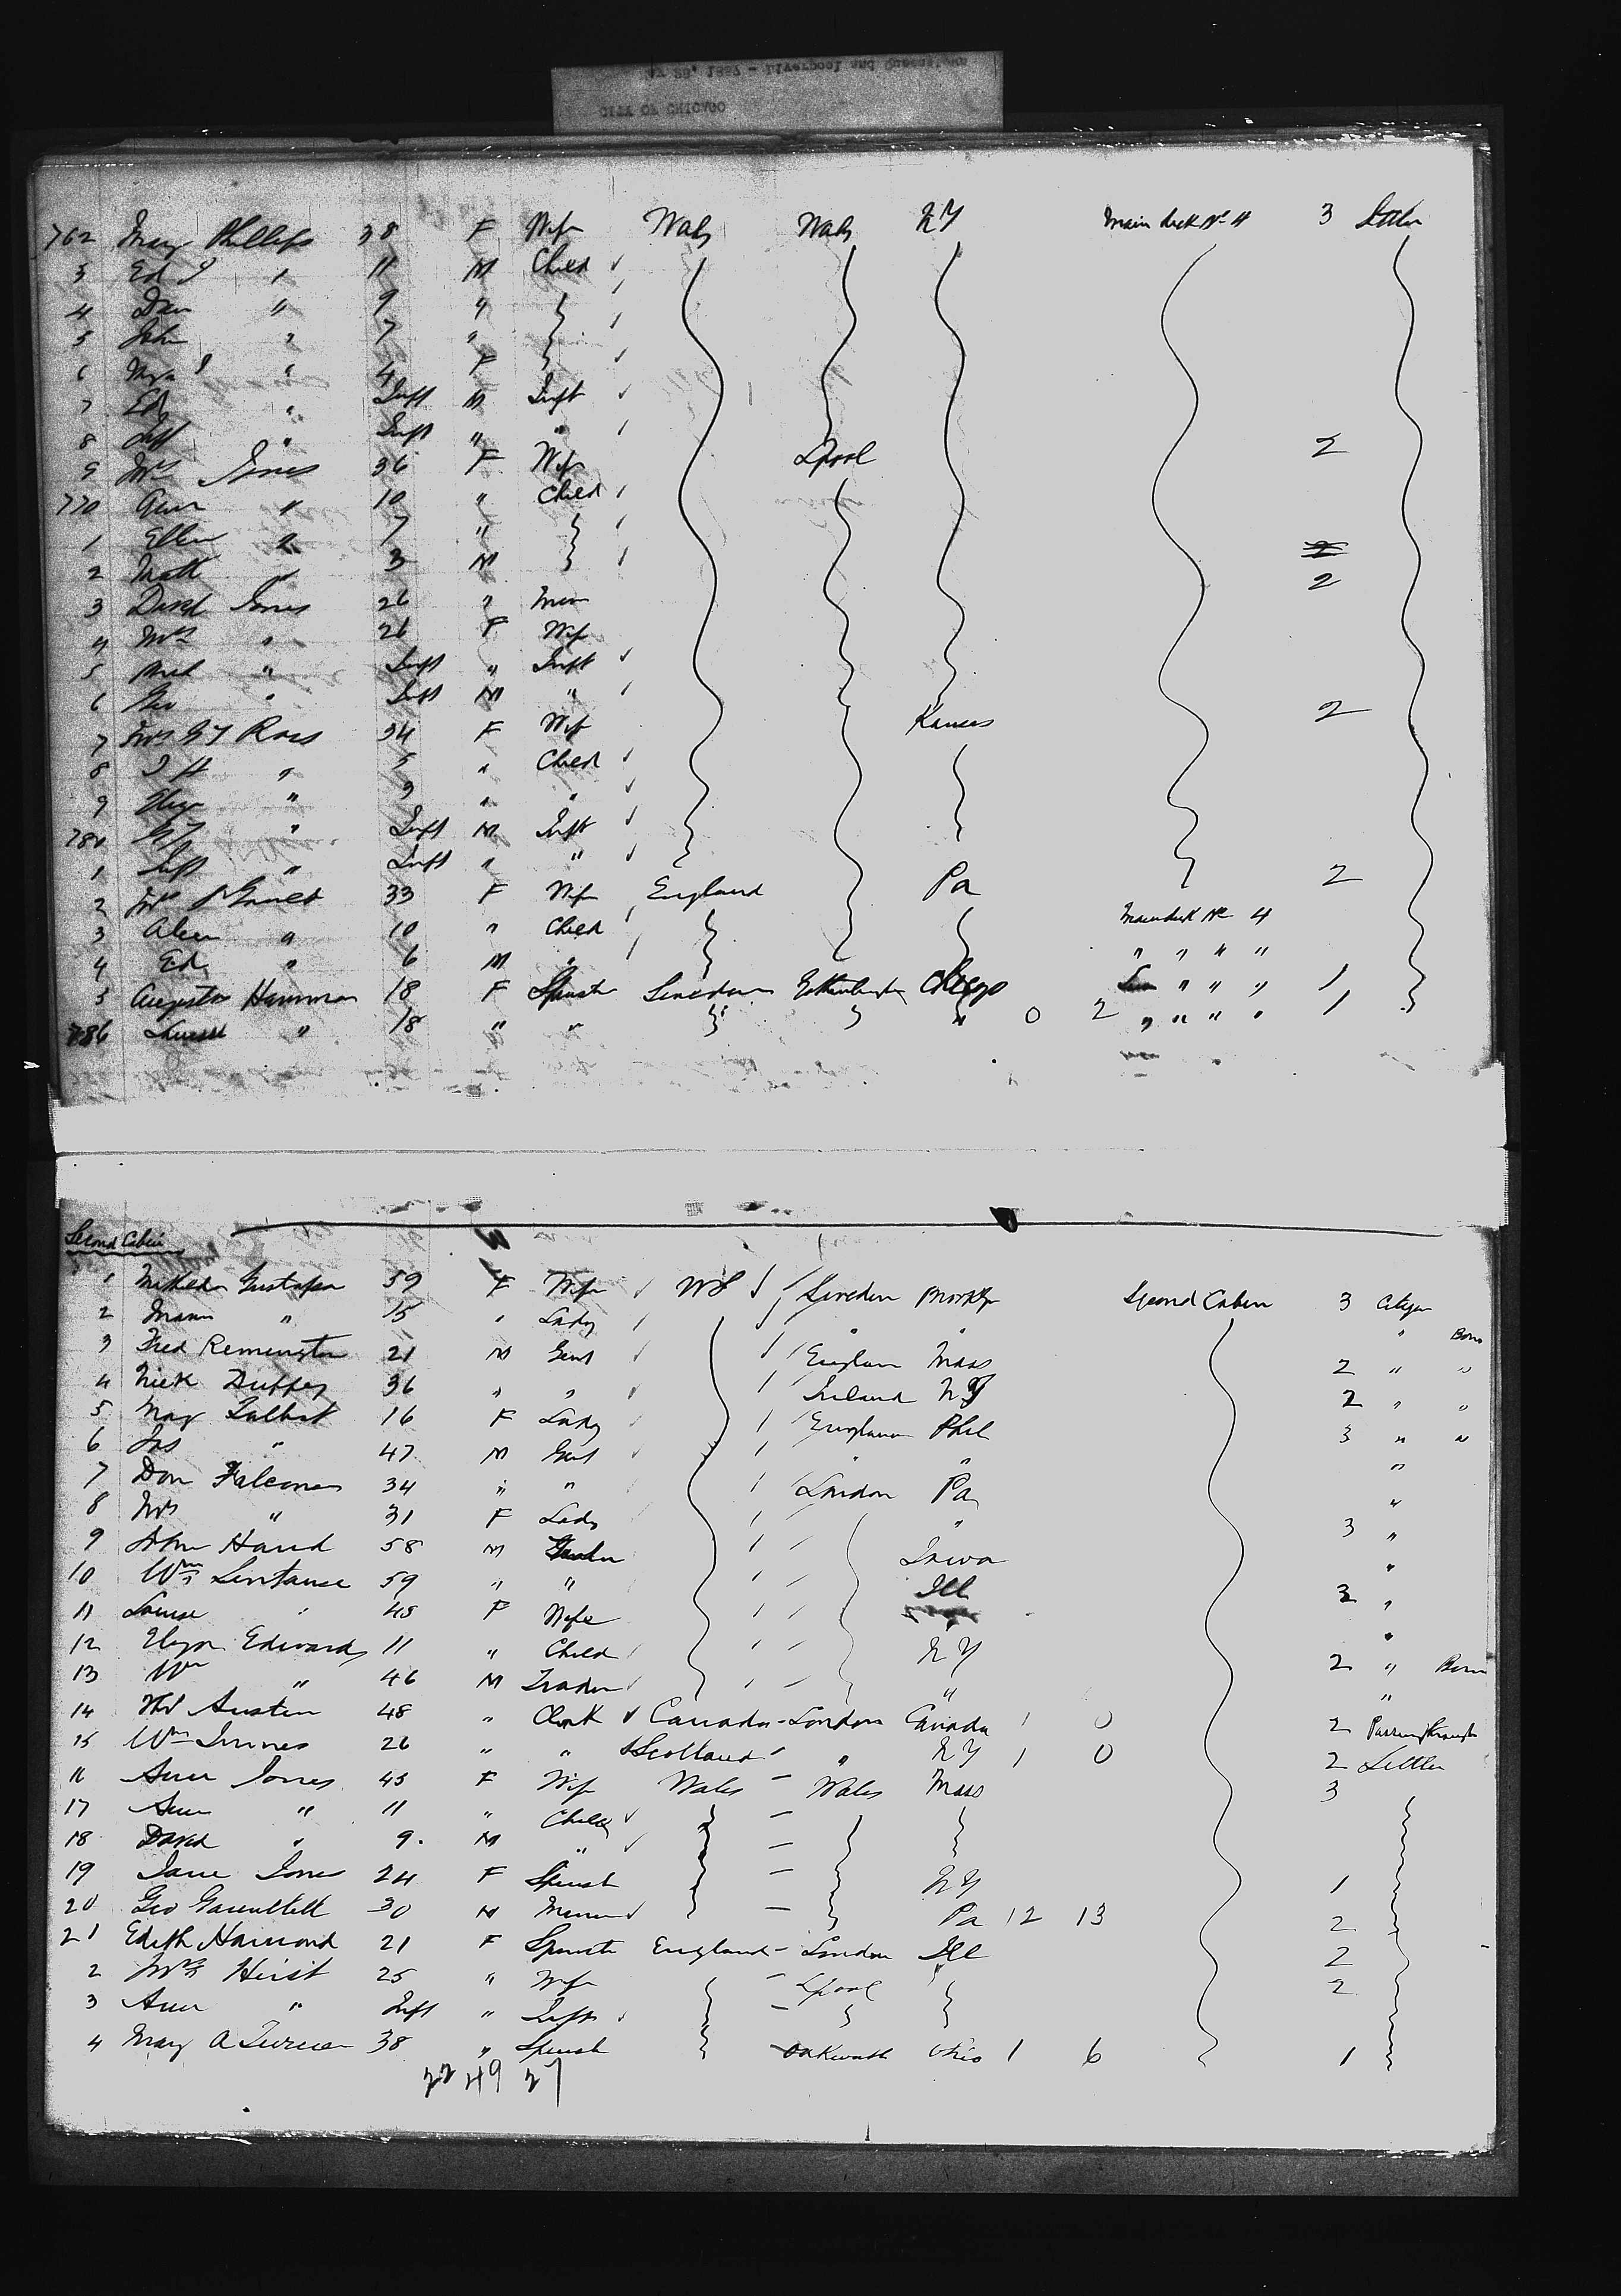 CITY OF CHICAGO
762 Mary Phillips 38 F Wife Wales Wales NY Main deck No 4 3 Settler
3 Ed J " 11 M Child
4 Dan " 9 "
5 John " 7 "
6 " 4 F
7 Ed " Inft M Inft
8 Inft " Inft " "
9 Mrs Jones 36 F Wife Lpool 2
770 Ann " 10 " Child
1 Ellen " 7 "
2 Matt " 3 M 2
3 David Jones 26 " Miner 2
4 Mrs " 26 F Wife
5 " Inft " Inft
6 Geo " Inft M "
7 Mrs G T Ross 34 F Wife Kansas 2
8 J H " 5 " Child
9 Eliza " 3 " "
780 G T " Inft M Inft
1 Inft " Inft " "
2 Mrs 33 F Wife England Pa 2
3 " 10 " Child Main deck No 4
4 Ed " 6 M " " " " "
5 Augusta 18 F Spinster Sweden Chicago " " " 1
786 " 18 " " " 0 2 " " " " 1
Second Cabin
1 Gustafson 59 F Wife US Sweden Brooklyn Second Cabin 3 Citizen
2 " 15 " Lady " " " Born
3 Fred Remington 21 M Gent England Mass 2 " "
4 Nick Duffey 36 " " Ireland NY 2 " "
5 May Talbot 16 F Lady England Phil 3 " "
6 Jas " 47 M Gent " " "
7 Don Falconer 34 " " London Pa "
8 Mrs " 31 F Lady " 3 "
9 John Hand 58 M Iowa "
10 Wm 59 " " Ill 2 "
11 Louise " 45 F Wife "
12 Eliza Edwards 11 " Child NY 2 " Born
13 Wm " 46 M Trader " "
14 Austin 48 " Clerk Canada London Canada 1 0 2 Passing through
15 Wm Innes 26 " " Scotland " NY 1 0 2 Settler
16 Ann Jones 45 F Wife Wales Wales Mass 3
17 Ann " 11 " Child
18 David " 9 M "
19 Jane Jones 24 F Spinst NY 1
20 Geo Gauntlett 30 M Pa 12 13 2
21 Edith Hamond 21 F Spinster England London Ill 2
2 Mrs Hirst 25 " Wife Lpool 2
3 Ann " Inft " Inft
4 Mary A 38 " Spinst Oakworth Ohio 1 6 1
22 49 27